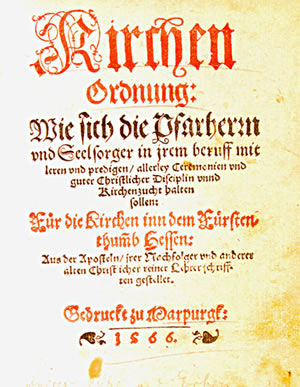 Kirchen
Ordnung:
Wie sich die Pfarherrn
vnd Seelsorger in jrem beruff mit
leren vnd predigen / allerley Ceremonien vnd
guter Christlicher Disciplin vnnd
Kirchenzucht halten
sollen:
Für die Kirchen inn dem Fürsten-
thumb Hessen:
Aus der Aposteln / jrer Nachfolger vnd anderer
alten Christlicher reiner Lehrer schriff-
ten gestellet.
Gedruckt zu Marpurgk:
1566.